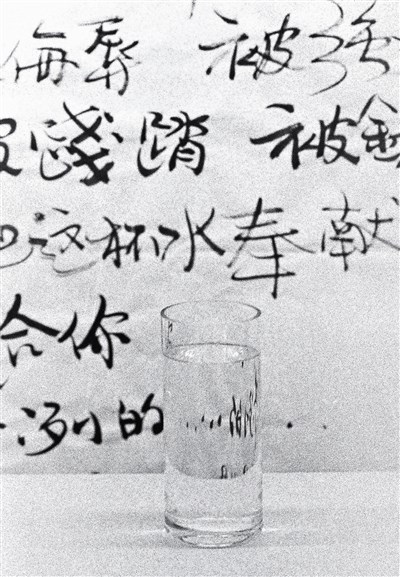 侮辱 被强
踐踏 被
这杯水奉献
给你
冽的......